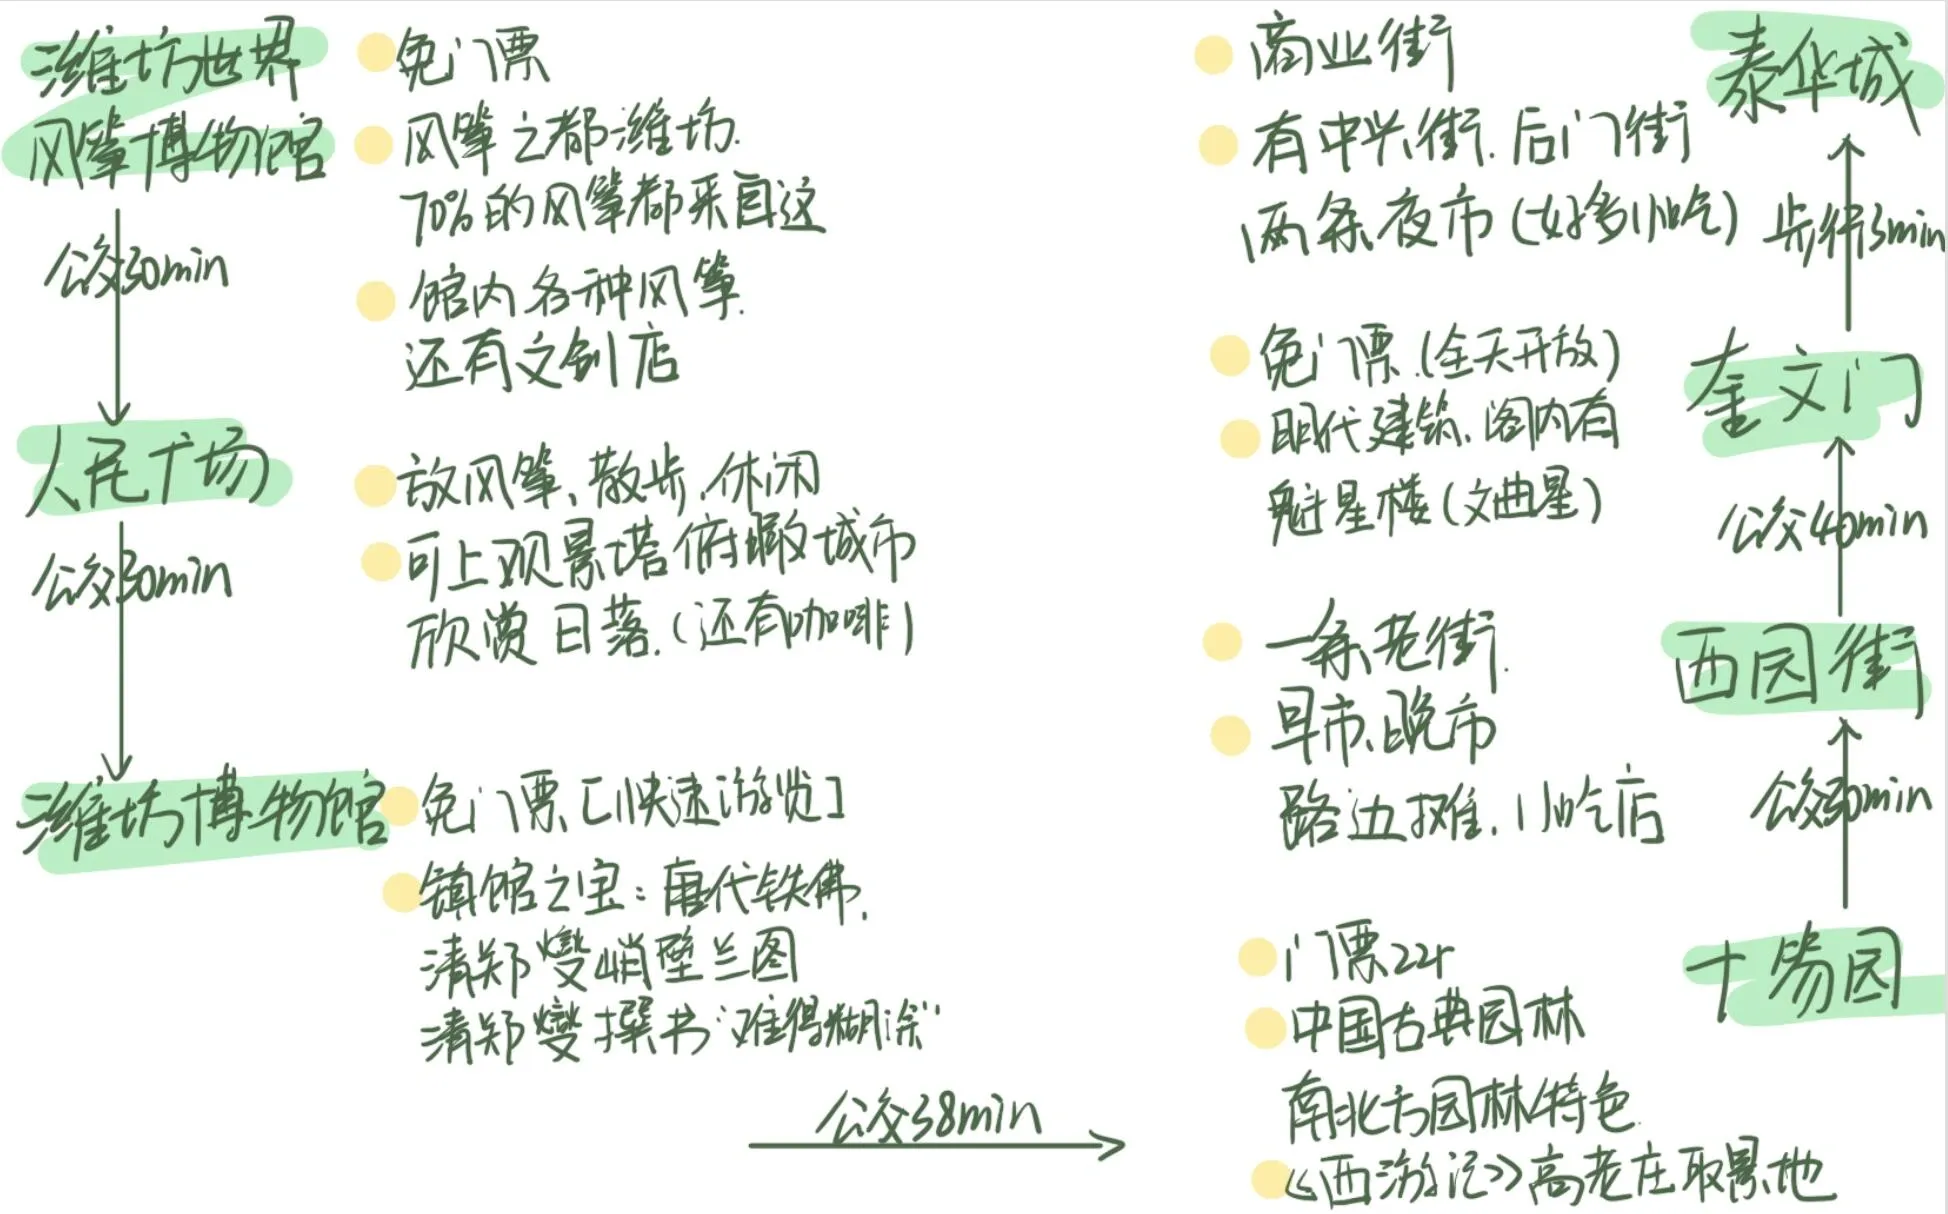 潍坊世界
风筝博物馆
免门票
风筝之都潍坊.
70%的风筝都来自这
馆内各种风筝.
还有文创店
公交30min
人民广场
放风筝、散步、休闲
可上观景塔俯瞰城市
欣赏日落.(还有咖啡)
公交30min
潍坊博物馆
免门票、[快速游览]
镇馆之宝:唐代铁佛,
清郑燮峭壁兰图
清郑燮撰书"难得糊涂"
公交38min
十笏园
门票22r
中国古典园林
南北方园林特色.
《西游记》高老庄取景地
公交30min
西园街
一条老街.
早市、晚市
路边摊、小吃店
公交40min
奎文门
免门票.(全天开放)
明代建筑、阁内有
魁星楼(文曲星)
步行3min
泰华城
商业街
有中兴街.后门街
两条夜市(好多小吃)